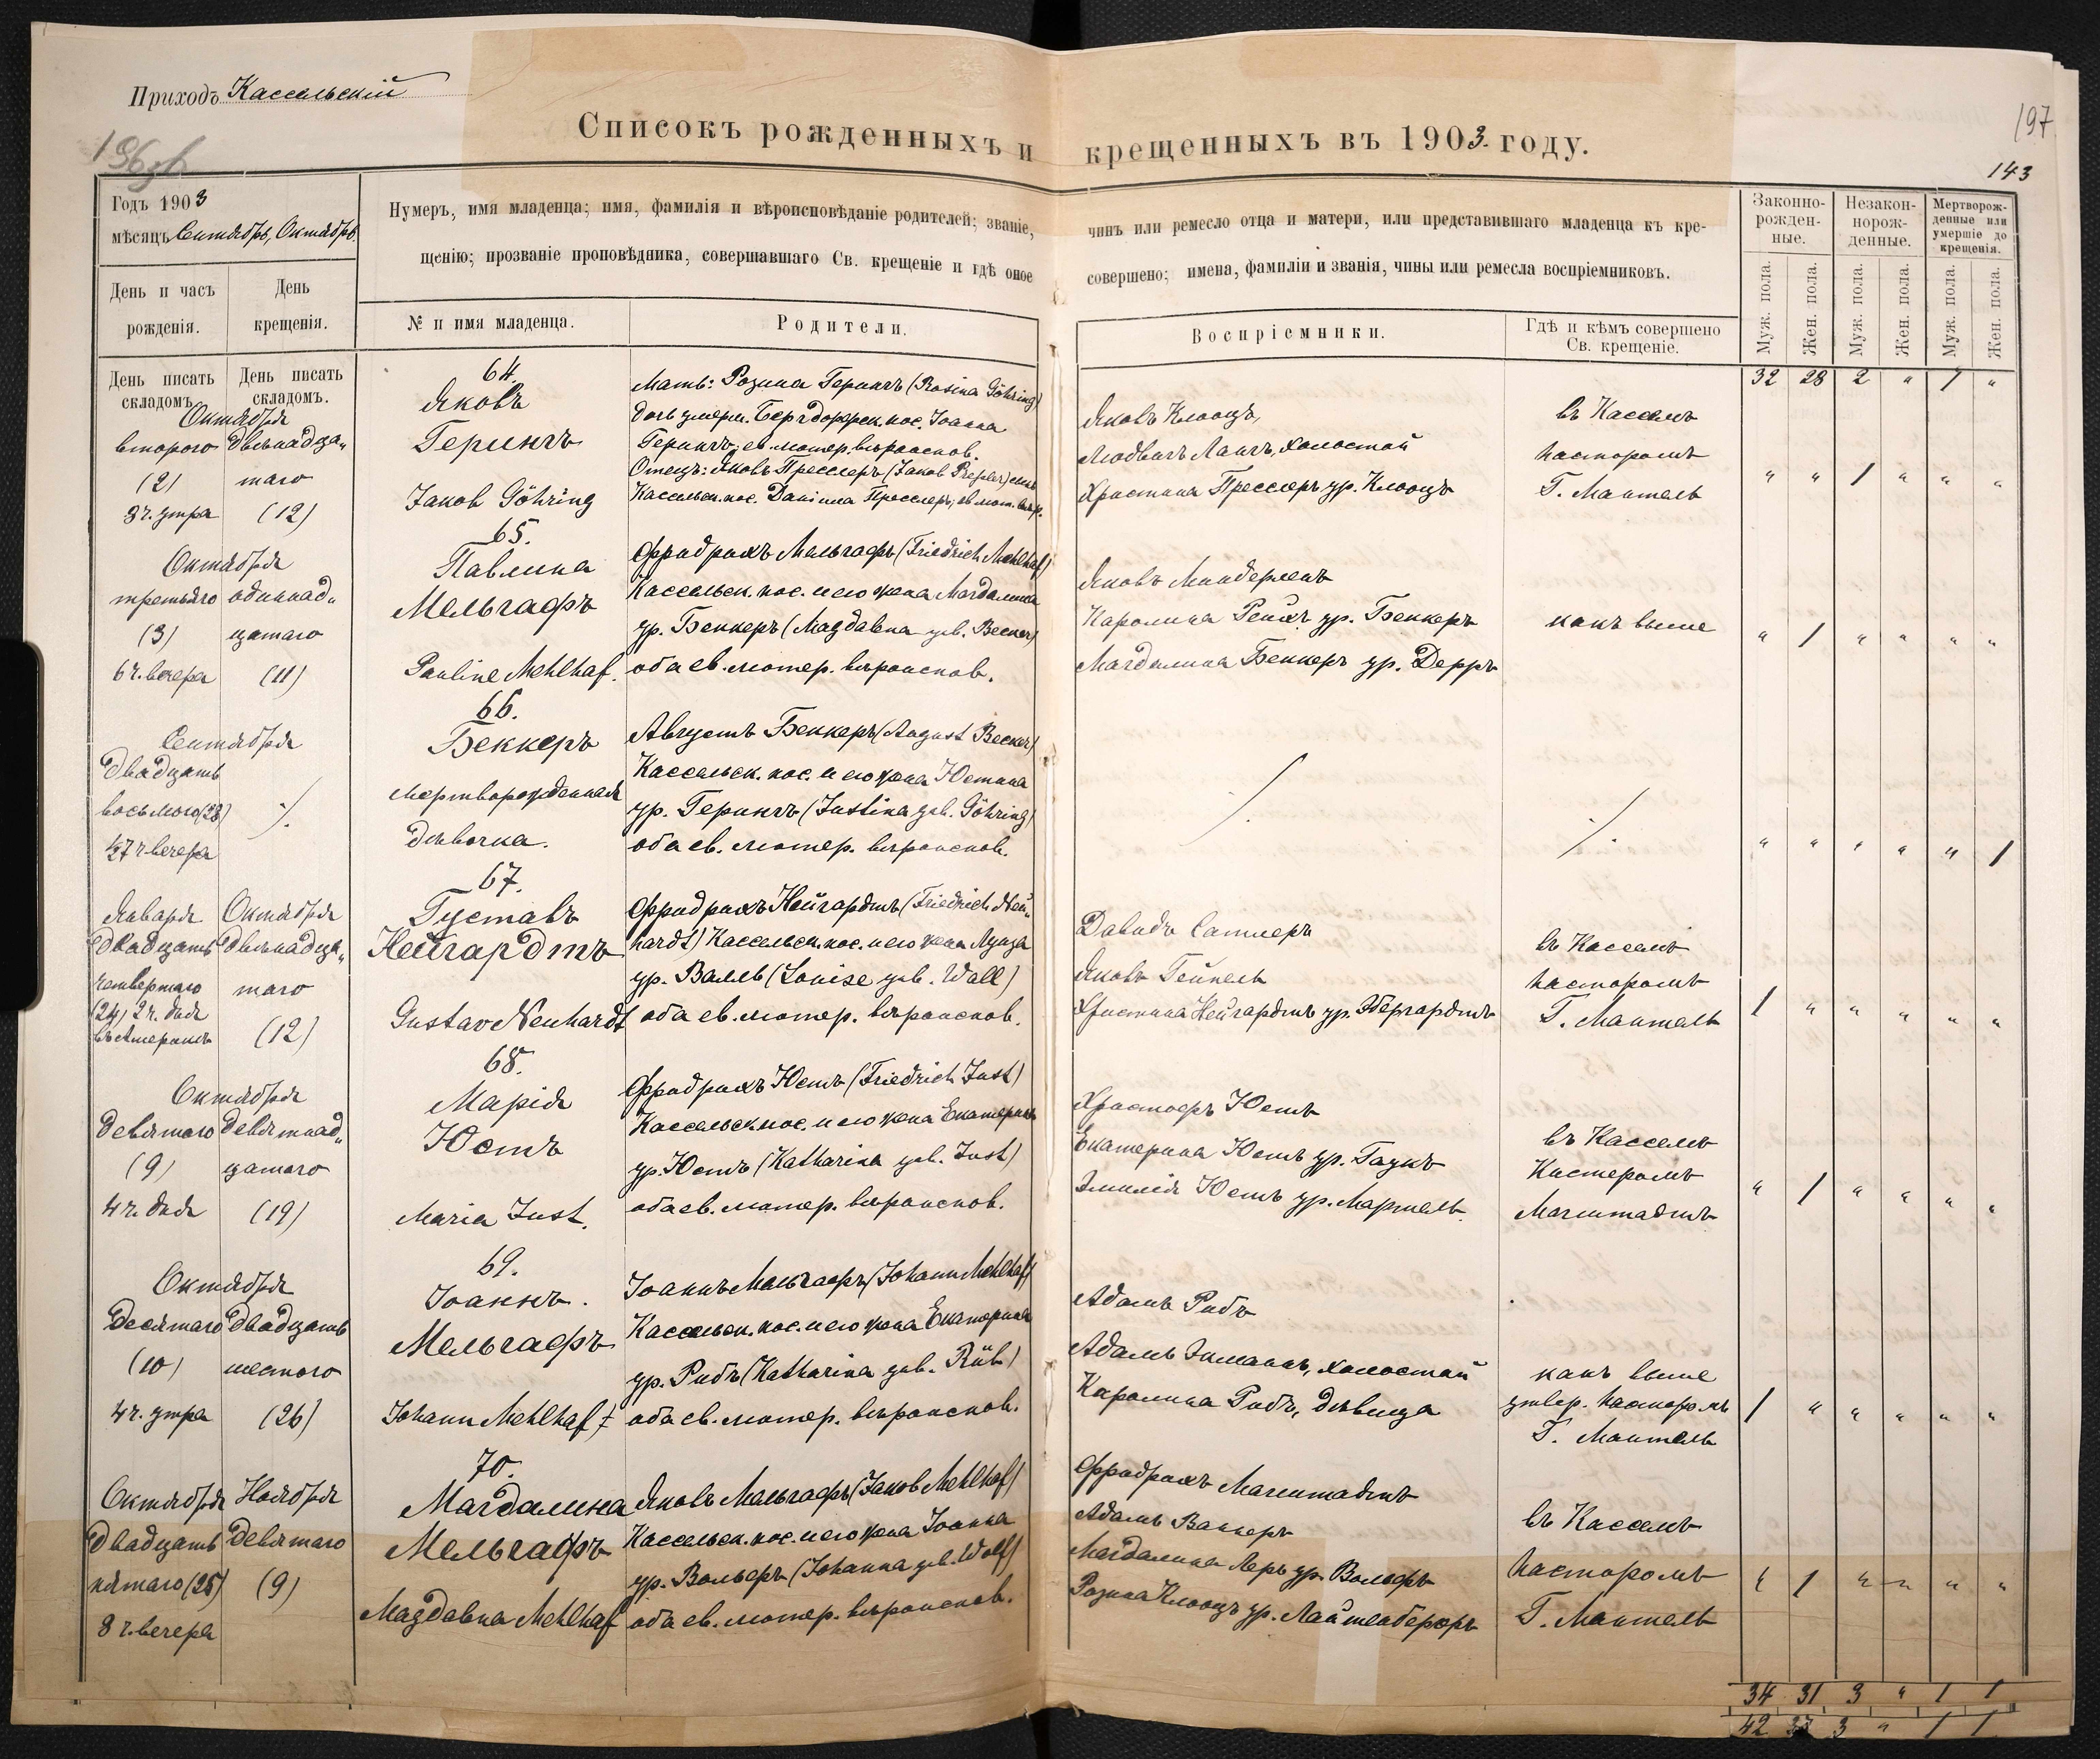 Приходъ Кассельскій
197
Списокъ рожденныхъ и крещенныхъ въ 1903. году.
143
Годъ 1903
мѣсяцъ Сентябрь, Октябрь.
Нумеръ, имя младенца; имя, фамилія и вѣроисповѣданіе родителей; званіе, чинъ или ремесло отца и матери, или представившаго младенца къ кре-
щенію; прозваніе проповѣдника, совершавшаго Св. крещеніе и гдѣ оное совершено; имена, фамиліи и званія, чины или ремесла воспріемниковъ.
Законно-
рожден-
ные.
Незакон-
норож-
денные.
Мертворож-
денные или
умершіе до
крещенія.
День и часъ
рожденія.
День
крещенія.
№ и имя младенца.
Родители.
Воспріемники.
Гдѣ и кѣмъ совершено
Св. крещеніе.
Муж. пола.
Жен. пола.
Муж. пола.
Жен. пола.
Муж. пола.
Жен. пола.
День писать
складомъ.
День писать
складомъ.
32 28 2 " 1 "
Октября
второго
(2)
3 ч. утра
двѣнадца„
таго
(12)
64.
Яковъ
Герингъ
Jakob Göhring
Мать: Розина Герингъ (Rosina Göhring)
дочь умерш. Бергдорфск. пос. Іоанна
Герингъ, ев. лютер. вѣроиспов.
Отецъ: Яковъ Пресслеръ (Jakob Preßler) сынъ
Кассельск. пос. Даніила Пресслеръ, ев. лют. вѣр.
Яковъ Клооцъ,
Людвигъ Лангъ, холостой
Христина Пресслеръ ур. Клооцъ
въ Касселѣ
пасторомъ
Г. Мантель
" " 1 " " "
Октября
третьяго
(3)
6 ч. вечера
одиннад„
цатаго
(11)
65.
Павлина
Мельгафъ
Pauline Mehlhaf.
Фридрихъ Мельгафъ (Friedrich Mehlhaf)
Кассельск. пос. и его жена Магдалина
ур. Беккеръ (Magdalena geb. Becker)
оба ев. лютер. вѣроиспов.
Яковъ Миндерленъ
Каролина Рейхъ ур. Беккеръ
Магдалина Беккеръ ур. Дерръ
какъ выше
" 1 " " " "
Сентября
двадцать
восьмого (28)
½7 ч. вечера
66.
Беккеръ
мертворожденная
дѣвочка.
Августъ Беккеръ (August Becker)
Кассельск. пос. и его жена Юстина
ур. Герингъ (Justina geb. Göhring)
оба ев. лютер. вѣроиспов.
" " " " " 1
Января
двадцать
четвертаго
(24) 2 ч. дня
въ Америкѣ
Октября
двѣнадца„
таго
(12)
67.
Густавъ
Нейгардтъ
Gustav Neuhardt
Фридрихъ Нейгардтъ (Friedrich Neu„
hardt) Кассельск. пос. и его жена Луиза
ур. Валль (Louise geb. Wall)
оба ев. лютер. вѣроиспов.
Давидъ Сатлеръ
Яковъ Гейпель
Христина Нейгардтъ ур. Эбергардтъ
въ Касселѣ
пасторомъ
Г. Мантель
1 " " " " "
Октября
девятаго
(9)
4 ч. дня
девятнад„
цатаго
(19)
68.
Марія
Юстъ
Maria Just.
Фридрихъ Юстъ (Friedrich Just)
Кассельск. пос. и его жена Екатерина
ур. Юстъ (Katharina geb. Just)
оба ев. лютер. вѣроиспов.
Христофъ Юстъ
Екатерина Юстъ ур. Гаукъ
Эмилія Юстъ ур. Мартель.
въ Касселѣ
Кистеромъ
Магштадтъ
" 1 " " " "
Октября
десятаго
(10)
4 ч. утра
двадцать
шестого
(26)
69.
Іоаннъ.
Мельгафъ
Johann Mehlhaf.
Іоаннъ Мельгафъ (Johann Mehlhaf)
Кассельск. пос. и его жена Екатерина
ур. Рибъ (Katharina geb. Rüb)
оба ев. лютер. вѣроиспов.
Адамъ Рибъ
Адамъ Энгманъ, холостой
Каролина Рибъ, дѣвица
какъ выше
утвер. пасторомъ
Г. Мантель
1 " " " " "
Октября
двадцать
пятаго (25)
8 ч. вечера
Ноября
девятаго
(9)
70.
Магдалина
Мельгафъ
Magdalena Mehlhaf
Яковъ Мельгафъ (Jakob Mehlhaf)
Кассельск. пос. и его жена Іоанна
ур. Вольфъ (Johanna geb. Wolf)
оба ев. лютер. вѣроиспов.
Фридрихъ Магштадтъ
Адамъ Ваккеръ
Магдалина Леръ ур. Вольфъ
Розина Клооцъ ур.
въ Касселѣ
пасторомъ
Г. Мантель
" 1 " " " "
34 31 3 " 1 1
42 3 " 1 1